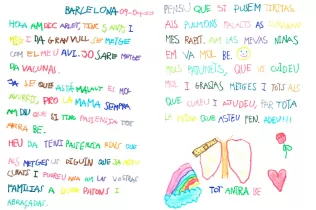 BARCELONA 09-04-2020
HOLA EM DIC ABRIL, TINC 5 ANYS I
MIG I DE GRAN VULL SER METGE
COM EL MEU AVI. JO SARÉ METGE
DA VACUNAS.
JA SÉ QUE ESTÉ MALALT EL MOL
AVORRIT, PERO LA MAMA SEMPRA
AM DIU QUE SI TINC PASIENCIA TOT
ANIRA BE.
HEU DA TENI PASIENCIA FINS QUE
ALS METGES US DIGUIN QUE JA
CURATS I PUGUEU ANA AM LAS VOSTRAS
FAMILIAS A FER PATONS I
ABRAÇADAS.
PENSU QUE SI PUJEM TIRITAS
ALS PULMONS MALALTS AS CURARAN
MES RAPIT. AM LAS MEVAS NINAS
EM VA MOL BE.
MOLS PATUNETS, QUE US CUIDEU
MOL I GRASIAS METGES I TOTS ALS
QUE CUREU I AJUDEU, PAR TOTA
LA FEINA QUE ASTEU FEN. ADEU!!!
TOT ANIRA BE